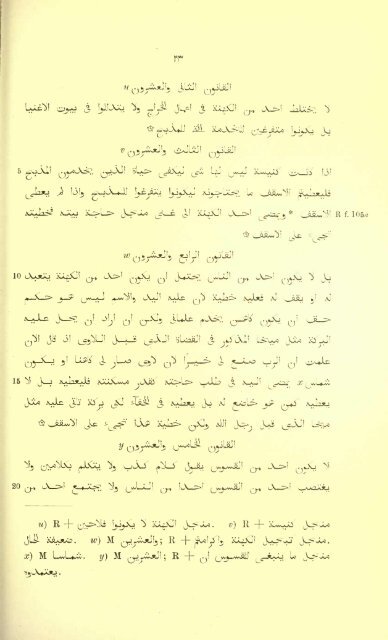 ٢٣
القانون الثانى والعشرون u
لا يختلط احد من الكهنة فى اعمال الخراج ولا يتداللوا فى بيوت الاغنيا
بل يكونوا متفرغين لخدمة الله للمذبح ۞
القانون الثالث والعشرون v
اذا كانت كنيسة ليس لها شى ليكفى حياة الذين يخدمون المذبح 5
فليعطيهم الاسقف ما يحتاجونه ليكونوا يتفرغوا للمذبح واذا لم يعطى
الاسقف * ويمضى احد الكهنة الى غنى مدجل حاجة بيته فخطيته R f. 105a
تجىء على الاسقف ۞
القانون الرابع والعشرون w
بل لا يكون احد من الناس يحتمل ان يكون احد من الكهنة يتعبد 10
له او يقف له فعليه خطية لان عليه اليد والاسم ليس هو حكم
حق ان يكون كاهن يخدم علمانى ولكن ان اراد ان يحل عليه
البركة مثل ميخا المذكور فى القضاة الذى قبل اللاوى اذ قال الان
علمت ان الرب صنع لى خيرا لان لاوى صار لى كاهنا او يكون
شمس x يمضى اليه فى طلب حاجته تقدر مسكنته فليعطيه بل لا 15
يعطيه كمن هو خاضع له بل يعطيه فى الخفاء لكى بركة تاتى عليه مثل
ميخا الذى قبل رجل الله ولكن خطية هذا تجىء على الاسقف ۞
القانون الخامس والعشرون y
لا يكون احد من القسوس يقول كلام كذب ولا يتكلم بكلامين ولا
يغتصب احد من القسوس احدا من الناس ولا يجتمع احد من 20
u) R + مدجل الكهنة لا يكونوا فلاحين. v) R + مدجل كنيسة
ضعيفة الحال. w) M والعشرين; R + مدجل تبجيل الكهنة واكرامهم.
x) M شماسا. y) M والعشرين; R + مدجل ما ينبغى للقسوس ان
يعتمدوه.